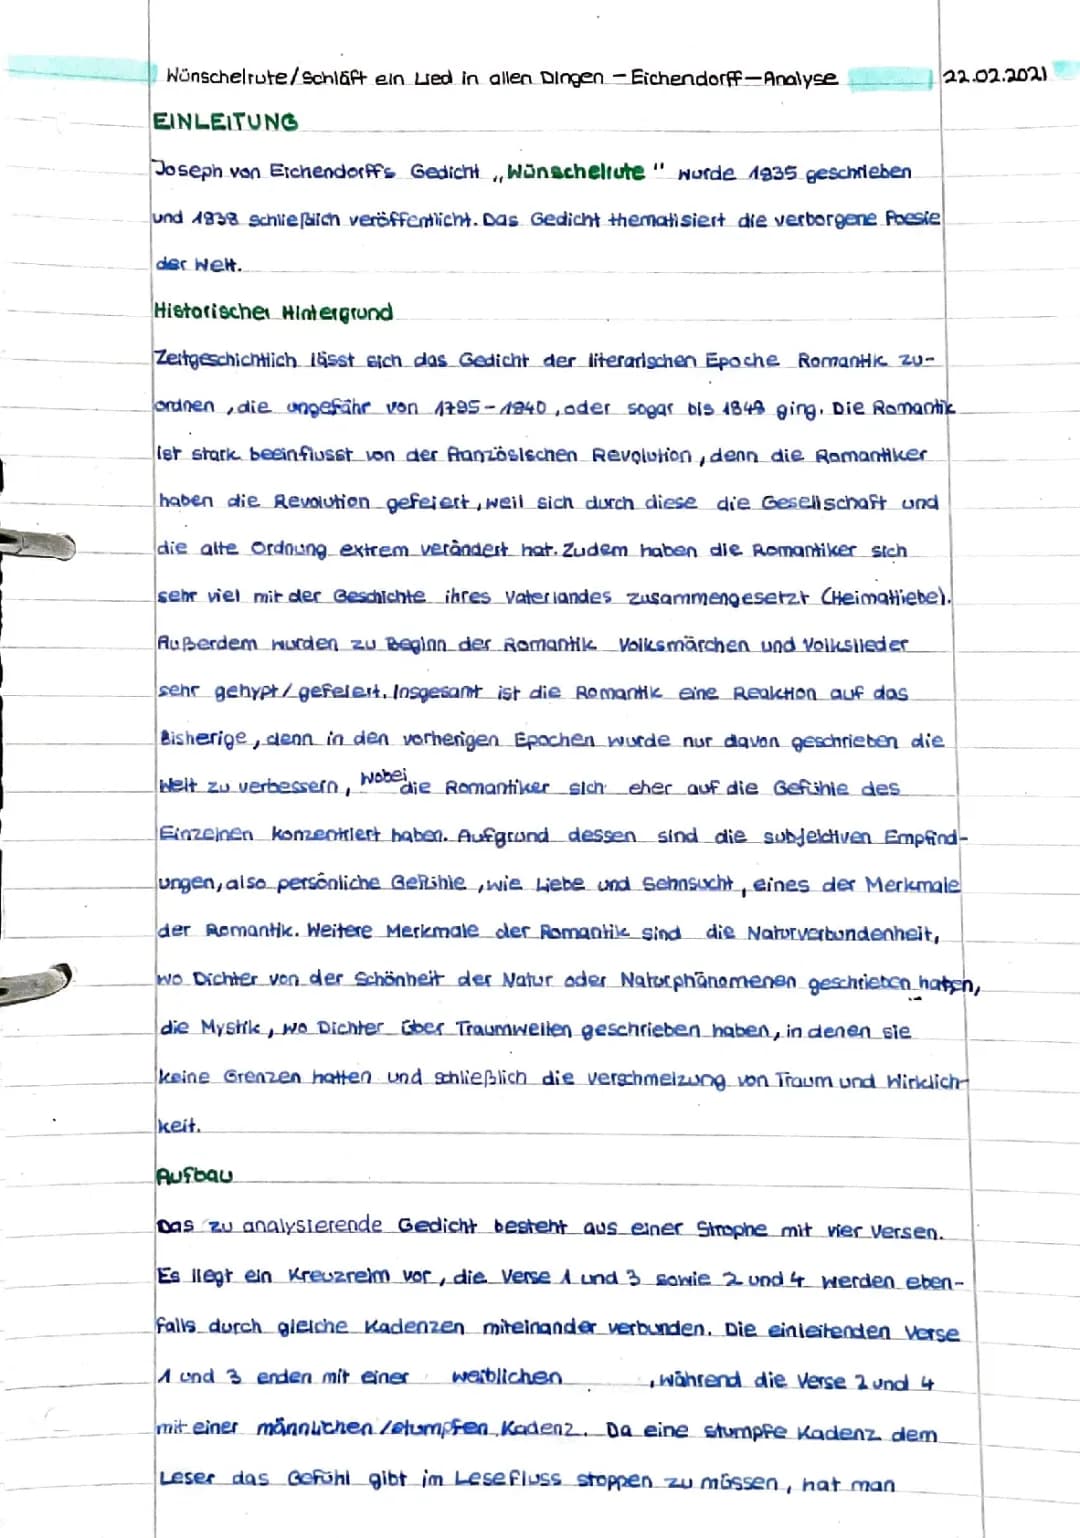 Wünschelrute/Schläft ein Lied in allen Dingen - Eichendorff-Analyse 22.02.2021
EINLEITUNG
Joseph von Eichendorffs Gedicht „Wünschelrute" wurde 1835 geschrieben
und 1838 schließlich veröffentlicht. Das Gedicht thematisiert die verborgene Poesie
der Welt.
Historischer Hintergrund
Zeitgeschichtlich lässt sich das Gedicht der literarischen Epoche Romantik zu-
ordnen, die ungefähr von 1795-1840, oder sogar bis 1848 ging. Die Romantik
ist stark beeinflusst von der französischen Revolution, denn die Romantiker
haben die Revolution gefeiert, weil sich durch diese die Gesellschaft und
die alte Ordnung extrem verändert hat. Zudem haben die Romantiker sich
sehr viel mit der Geschichte ihres Vaterlandes zusammengesetzt (Heimatliebe).
Außerdem wurden zu Beginn der Romantik Volksmärchen und Volkslieder
sehr gehypt/gefeiert. Insgesamt ist die Romantik eine Reaktion auf das
Bisherige, denn in den vorherigen Epochen wurde nur davon geschrieben die
Welt zu verbessern, wobei die Romantiker sich eher auf die Gefühle des
Einzelnen konzentriert haben. Aufgrund dessen sind die subjektiven Empfind-
ungen, also persönliche Gefühle, wie Liebe und Sehnsucht, eines der Merkmale
der Romantik. Weitere Merkmale der Romantik sind die Naturverbundenheit,
wo Dichter von der Schönheit der Natur oder Naturphänomenen geschrieben haben,
die Mystik, wo Dichter über Traumwelten geschrieben haben, in denen sie
keine Grenzen hatten und schließlich die Verschmelzung von Traum und Wirklich-
keit.
Aufbau
Das zu analysierende Gedicht besteht aus einer Strophe mit vier Versen.
Es liegt ein Kreuzreim vor, die Verse 1 und 3 sowie 2 und 4 werden eben-
falls durch gleiche Kadenzen miteinander verbunden. Die einleitenden Verse
1 und 3 enden mit einer weiblichen , während die Verse 2 und 4
mit einer männlichen/stumpfen Kadenz. Da eine stumpfe Kadenz dem
Leser das Gefühl gibt im Lesefluss stoppen zu müssen, hat man